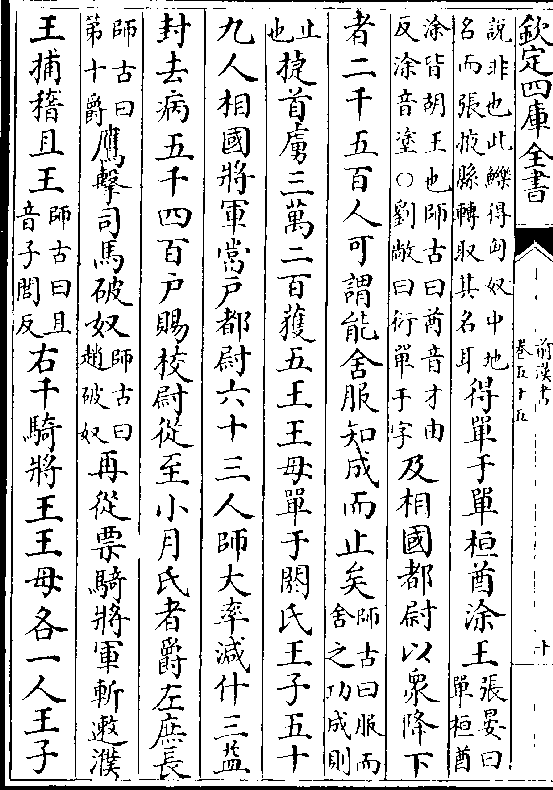 欽定四庫全書
前漢書
卷五十五
十
說非也此觻得匈奴中地
名而張掖縣轉取其名耳
得單于單桓酋涂王
張晏曰
單桓酋
涂皆胡王也師古曰酋音才由
反涂音塗○劉敞曰衍單于字
及相國都尉以衆降下
者二千五百人可謂能舍服知成而止矣
師古曰服而
舍之功成則
止
也
捷首虜三萬二百獲五王王母單于閼氏王子五十
九人相國將軍當戶都尉六十三人師大率減什三益
封去病五千四百戶賜校尉從至小月氏者爵左庶長
師古曰
第十爵
鷹擊司馬破奴
師古曰
趙破奴
再從票騎將軍斬遬濮
王捕稽且王
師古曰且
音子閭反
右千騎將王王母各一人王子